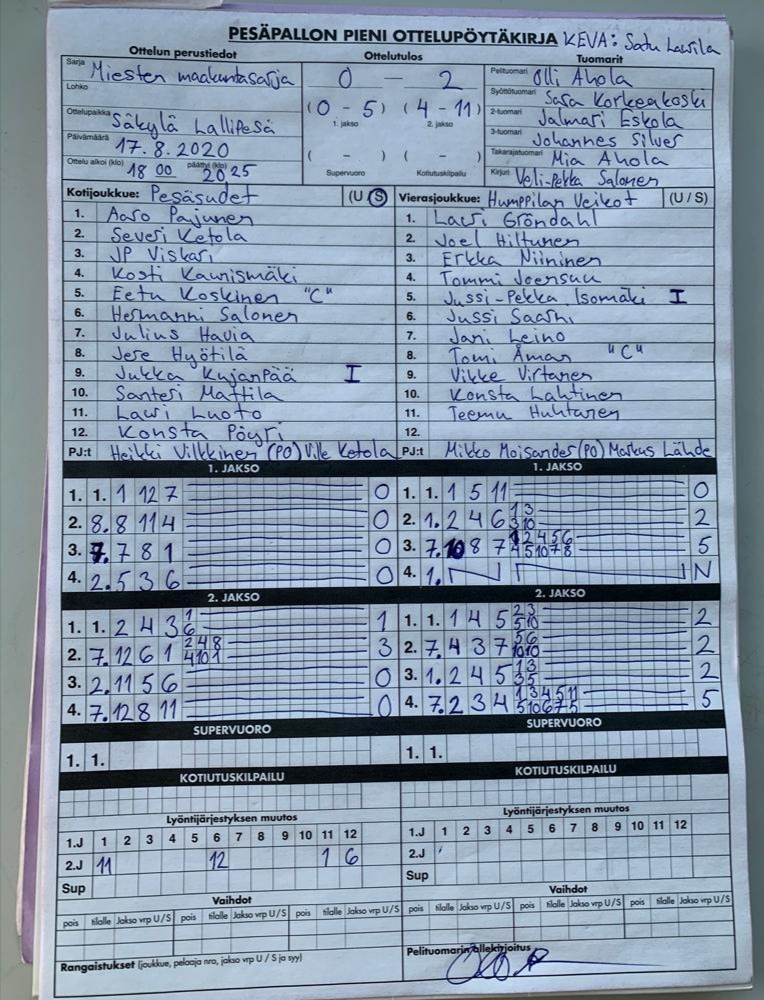 PESÄPALLON PIENI OTTELUPÖYTÄKIRJA KEVA: Satu Laurila
Ottelun perustiedot Ottelutulos Tuomarit
Sarja Miesten maakuntasarja 0 – 2 Pelituomari Olli Ahola
Lohko (0 - 5) (4 - 11) Syöttötuomari Sara Korkeakoski
Ottelupaikka Säkylä Lallipesä 1. jakso 2. jakso 2-tuomari Jalmari Eskola
Päivämäärä 17.8.2020 3-tuomari Johannes Silver
( - ) ( - ) Takarajatuomari Mia Ahola
Ottelu alkoi (klo) 18 00 päättyi (klo) 20 25 Supervuoro Kotiutuskilpailu Kirjuri Veli-Pekka Salonen
Kotijoukkue: Pesäsudet (U S) Vierasjoukkue: Humppilan Veikot (U / S)
1. Aaro Pajunen 1. Lauri Gröndahl
2. Severi Ketola 2. Joel Hiltunen
3. JP Viskari 3. Erkka Niininen
4. Kosti Kaunismäki 4. Tommi Joensuu
5. Eetu Koskinen "C" 5. Jussi-Pekka Isomäki I
6. Hermanni Salonen 6. Jussi Saarni
7. Julius Havia 7. Jani Leino
8. Jere Hyötilä 8. Tomi Åman "C"
9. Jukka Kujanpää I 9. Vikke Virtanen
10. Santeri Mattila 10. Konsta Lahtinen
11. Lauri Luoto 11. Teemu Huhtanen
12. Konsta Pöyri 12.
PJ:t Heikki Vilkkinen (PO) Ville Ketola PJ:t Mikko Moisander (PO) Markus Lähde
1. JAKSO 1. JAKSO
1. 1. 1 12 7 0 1. 1. 1 5 11 0
2. 8. 8 11 4 0 2. 1. 2 4 6 1 3 3 10 2
3. 7. 7 8 1 0 3. 7. 10 8 7 1 2 4 5 6 4 5 10 7 8 5
4. 2. 5 3 6 0 4. 1. N
2. JAKSO 2. JAKSO
1. 1. 2 4 3 1 6 1 1. 1. 1 4 5 2 3 5 10 2
2. 7. 12 6 1 2 4 8 4 10 1 3 2. 7. 4 3 7 5 6 10 10 2
3. 2. 11 5 6 0 3. 1. 2 4 5 1 3 3 5 2
4. 7. 12 8 11 0 4. 7. 2 3 4 1 3 4 5 11 5 10 6 7 5 5
SUPERVUORO SUPERVUORO
1. 1. 1. 1.
KOTIUTUSKILPAILU KOTIUTUSKILPAILU
Lyöntijärjestyksen muutos Lyöntijärjestyksen muutos
1.J 1 2 3 4 5 6 7 8 9 10 11 12 1.J 1 2 3 4 5 6 7 8 9 10 11 12
2.J 11 12 1 6 2.J
Sup Sup
Vaihdot Vaihdot
pois tilalle Jakso vrp U/S pois tilalle Jakso vrp U/S pois tilalle Jakso vrp U/S pois tilalle Jakso vrp U/S pois tilalle Jakso vrp U/S pois tilalle Jakso vrp U/S
Rangaistukset (joukkue, pelaaja nro, jakso vrp U / S ja syy) Pelituomarin allekirjoitus